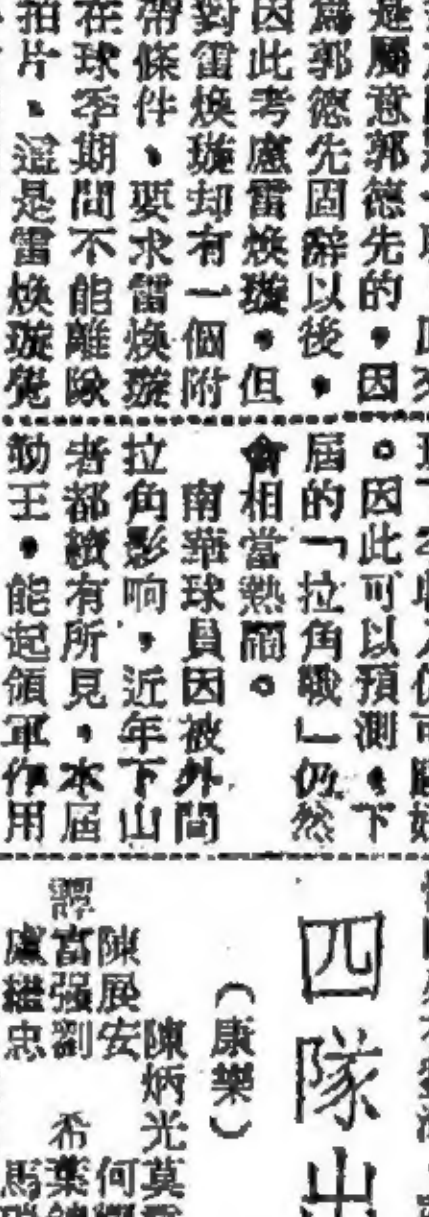 是屬意郭德先的，因
爲郭德先固辭以後，
因此考慮雷煥璇，但
對雷煥璇却有一個附
帶條件，要求雷煥璇
在球季期間不能離隊
拍片，這是雷煥璇覺
。因此可以預測，下
屆的「拉角戰」仍然
會相當熱鬧。
南華球員因被外間
拉角影响，近年下山
者都續有所見，本屆
勤王，能起領軍作用
四隊出
（康樂）
陳炳光莫
陳展安 何
譚富强劉 希葉
盧繼忠 馬